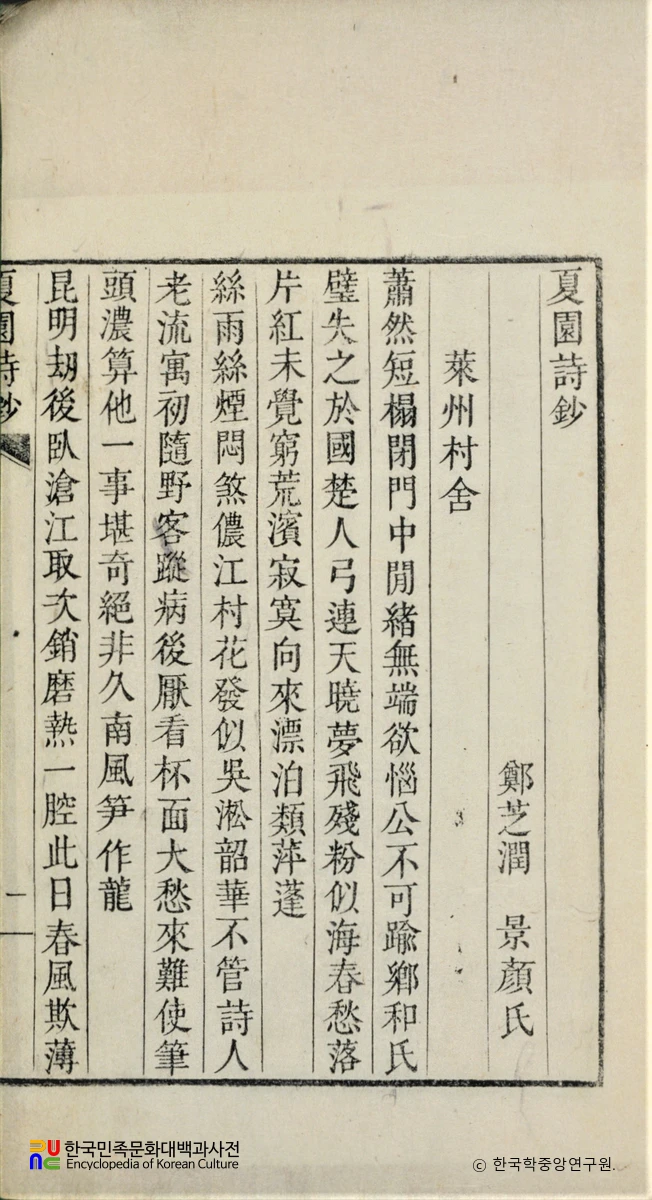 夏園詩鈔
鄭芝潤 景顏氏
萊州村舍
蕭然短榻閉門中閒緒無端欲惱公不可踰鄕和氏
璧失之於國楚人弓連天曉夢飛殘粉似海春愁落
片紅未覺窮荒濱寂寞向來漂泊類萍蓬
絲雨絲煙悶煞儂江村花發似吳淞韶華不管詩人
老流寓初隨野客蹤病後厭看杯面大愁來難使筆
頭濃算他一事堪奇絕非久南風笋作龍
昆明劫後臥滄江取次銷磨熱一腔此日春風欺薄
夏園詩鈔
一
한국민족문화대백과사전
Encyclopedia of Korean Culture
ⓒ 한국학중앙연구원.